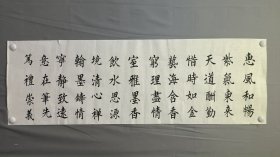 惠風和暢
紫氣東來
天道酬勤
惜時如金
藝海含香
窮理盡情
室雅墨香
飲水思源
境清心禪
翰墨鑄情
寧靜致遠
意在筆先
篤禮崇義